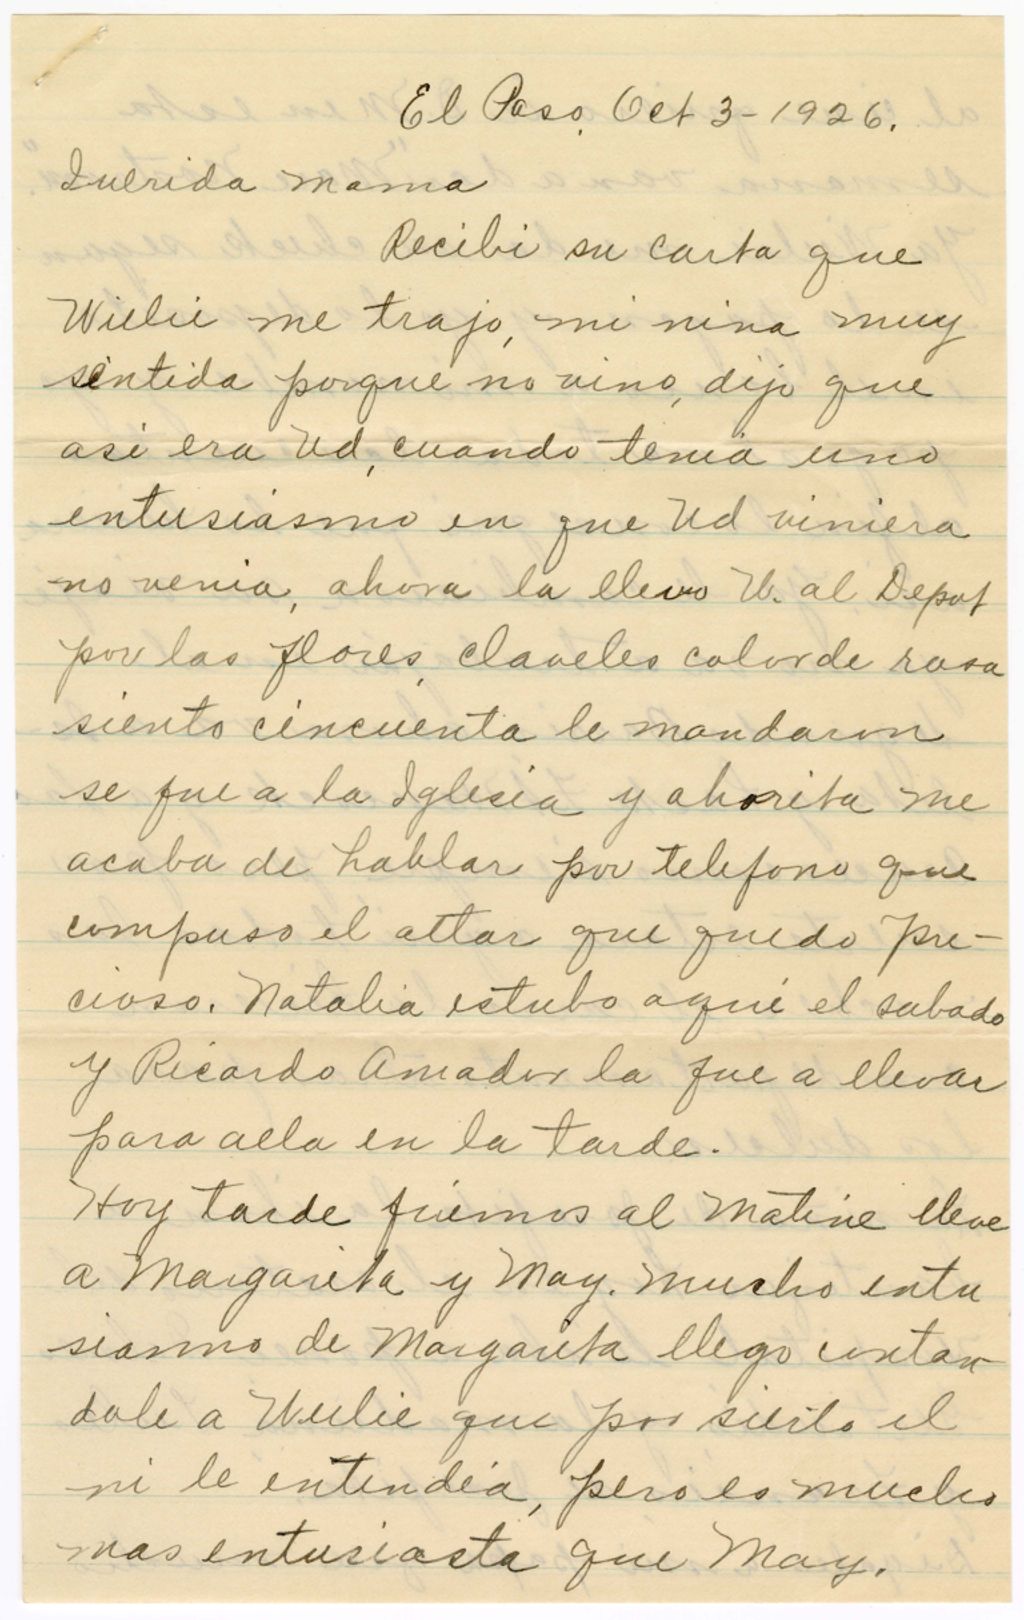 El Paso, Oct 3-1926.
Querida mama
Recibi su carta que
Willie me trajo, mi nina muy
sentida porque no vino, dijo que
asi era Ud, cuando tenia uno
entusiasmo en que Ud viniera
no venia, ahora la llevo W. al Depot
por las flores, claveles color de rosa
siento cincuenta le mandaron
se fue a la Iglesia y ahorita me
acaba de hablar por telefono que
compuso el altar que quedo pre-
cioso. Natalia estubo aqui el sabado
y Ricardo Amador la fue a llevar
para alla en la tarde.
Hoy tarde fuemos al Matine lleve
a Margarita y May. Mucho entu
siasmo de Margarita llego contan
dole a Willie que por sierto el
ni le entendia, pero es mucho
mas entusiasta que May.